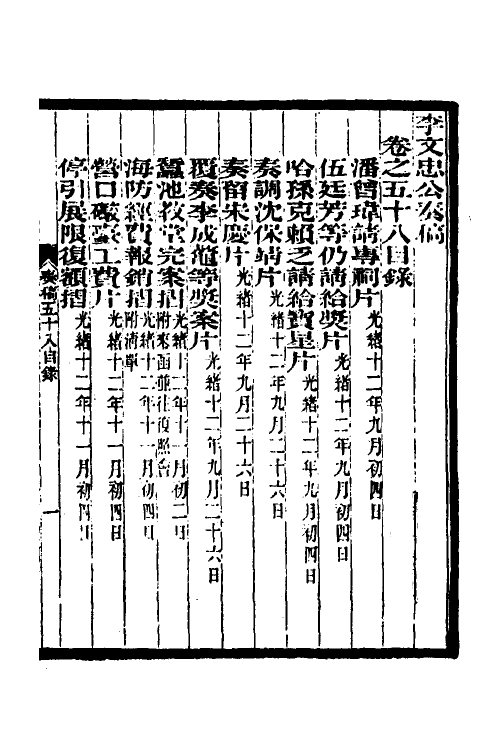 李文忠公奏稿
卷之五十八目錄
潘曾瑋請專祠片光緒十二年九月初四日
伍廷芳等仍請給獎片光緒十二年九月初四日
哈孫克賴乏請給寶星片光緒十二年九月初四日
奏調沈保靖片光緒十二年九月二十六日
奏留宋慶片光緒十二年九月二十六日
覆奏李成鼇等獎案片光緒十二年九月二十六日
蠶池教堂完案摺光緒十二年十一月初二日附來函並往復照會
海防經費報銷摺光緒十二年十一月初四日附清單
營口礮臺工費片光緒十二年十一月初四日
停引展限復額摺光緒十二年十一月初四日
奏稿五十八目錄
一